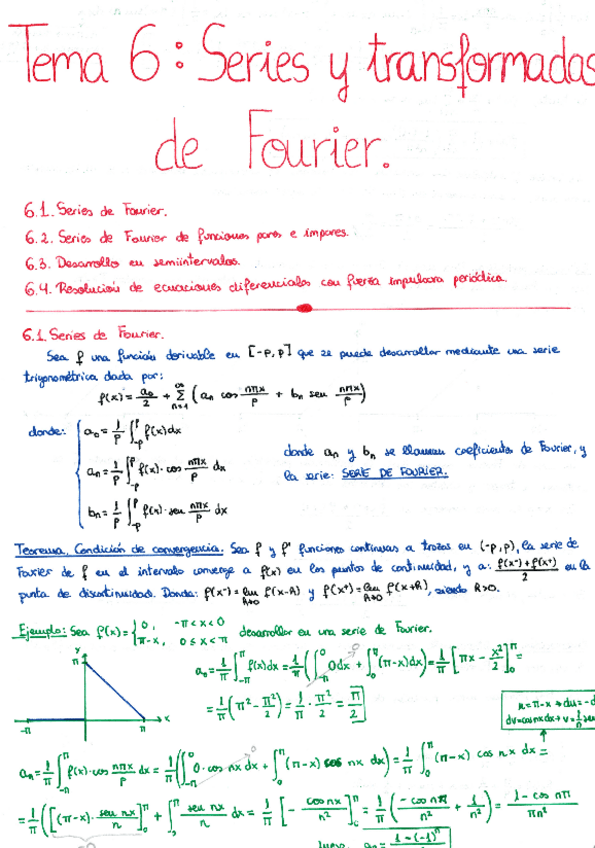 Tema 6: Series y transformadas
de Fourier.
6.1. Series de Fourier.
6.2. Series de Fourier de funciones pares e impares.
6.3. Desarrollo en semiintervalos.
6.4. Resolución de ecuaciones diferenciales con fuerza impulsora periódica.
6.1. Series de Fourier.
Sea f una función derivable en [-p, p] que se puede desarrollar mediante una serie
trigonométrica dada por:
f(x) = a₀/2 + Σ_{n=1}^{∞} (aₙ cos nπx/p + bₙ sen nπx/p)
donde: a₀ = 1/p ∫_{-p}^{p} f(x)dx
aₙ = 1/p ∫_{-p}^{p} f(x)·cos nπx/p dx
bₙ = 1/p ∫_{-p}^{p} f(x)·sen nπx/p dx
donde aₙ y bₙ se llaman coeficientes de Fourier, y
la serie: SERIE DE FOURIER.
Teorema. Condición de convergencia. Sea f y f' funciones continuas a trozos en (-p, p), la serie de
Fourier de f en el intervalo converge a f(x) en los puntos de continuidad, y a: (f(x⁻) + f(x⁺))/2 en la
punta de discontinuidad. Donde: f(x⁻) = lim_{h→0} f(x-h) y f(x⁺) = lim_{h→0} f(x+h), siendo h>0.
Ejemplo: Sea f(x) = { 0, -π<x<0
π-x, 0≤x<π desarrollar en una serie de Fourier.
y
π
-π π x
a₀ = 1/π ∫_{-π}^{π} f(x)dx = 1/π (∫_{-π}^{0} 0dx + ∫_{0}^{π} (π-x)dx) = 1/π [πx - x²/2]_{0}^{π} =
0
= 1/π (π² - π²/2) = 1/π · π²/2 = π/2
u = π-x → du = -d
dv = cos nx dx → v = 1/n sen
aₙ = 1/π ∫_{-π}^{π} f(x)·cos nπx/p dx = 1/π (∫_{-π}^{0} 0·cos nx dx + ∫_{0}^{π} (π-x) cos nx dx) = 1/π ∫_{0}^{π} (π-x) cos nx dx =
0
= 1/π ([(π-x)· sen nx/n]_{0}^{π} + ∫_{0}^{π} sen nx/n dx = 1/π [- cos nx/n²]_{0}^{π} = 1/π (-cos nπ/n² + 1/n²) = (1-cos nπ)/(πn²)
1-(-1)ⁿ